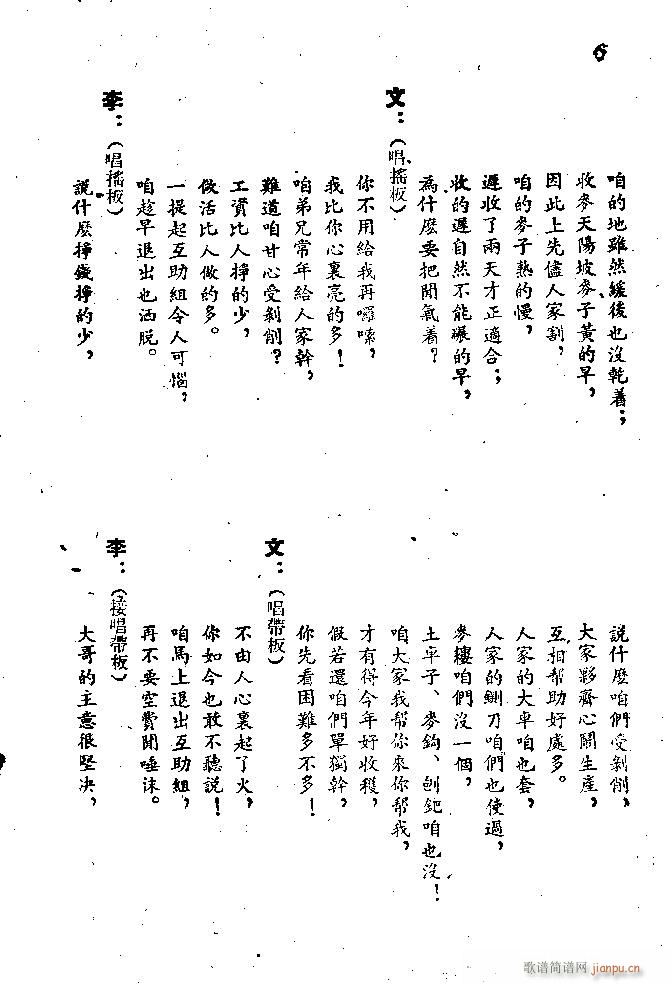 6
咱的地雖然緩後也沒乾着；
收麥天陽坡麥子黃的早，
因此上先儘人家割，
咱的麥子熟的慢，
遲收了兩天才正適合；
收的遲自然不能碾的早，
為什麼要把閒氣着？
文：（唱搖板）
你不用給我再囉嗦，
我比你心裏亮的多！
咱弟兄常年給人家幹，
難道咱甘心受剝削？
工資比人掙的少，
做活比人做的多。
一提起互助組令人可惱，
咱趁早退出也洒脱。
李：（唱搖板）
說什麼掙錢掙的少，
說什麼咱們受剝削，
大家夥齊心鬧生產，
互相幫助好處多。
人家的大車咱也套，
人家的鍘刀咱們也使過，
麥耬咱們沒一個，
土車子、麥鈎、刨鈀咱也沒！
咱大家我幫你來你幫我，
才有得今年好收穫，
假若還咱們單獨幹，
你先看困難多不多！
文：（唱帶板）
不由人心裏起了火，
你如今也敢不聽說！
咱馬上退出互助組，
再不要空費閒唾沫。
李：（接唱帶板）
大哥的主意很堅决，
歌谱简谱网
jianpu.cn